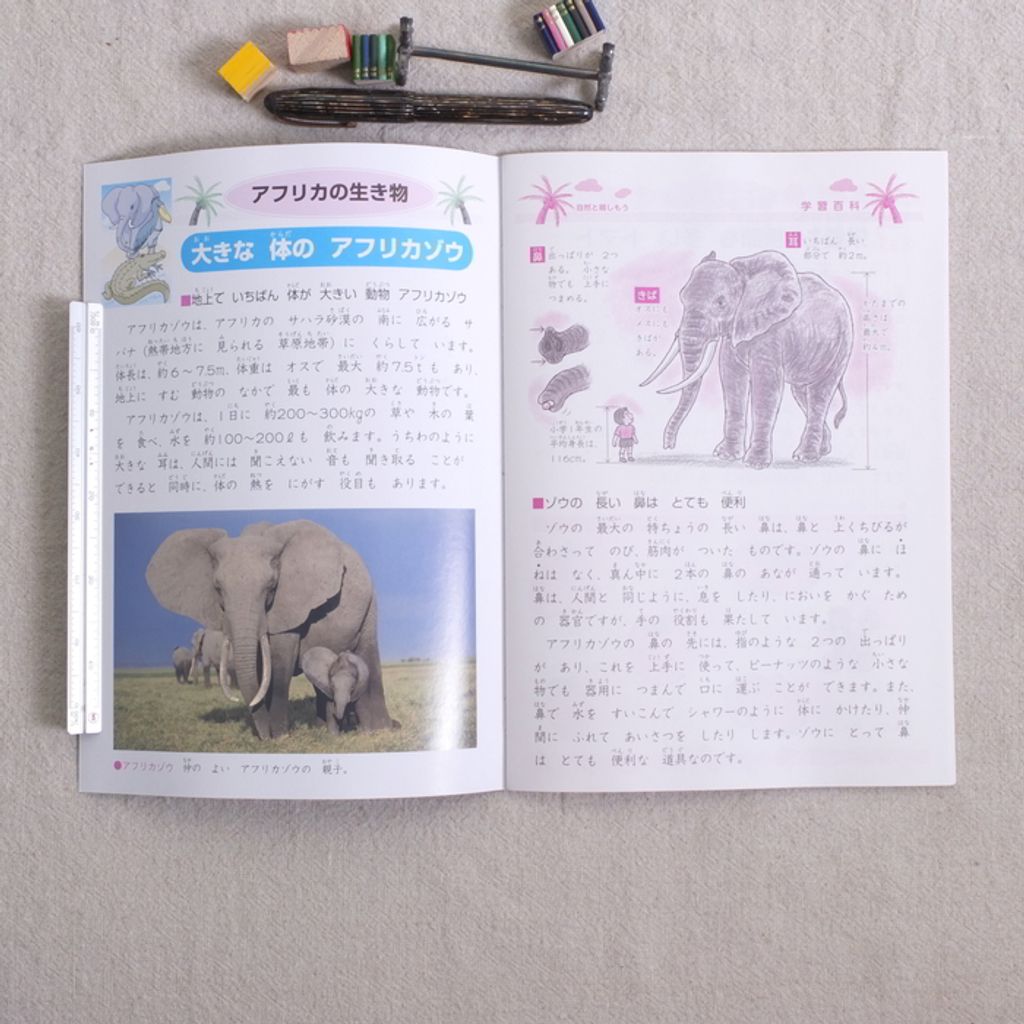 アフリカの生き物
大きな 体の アフリカゾウ
■地上で いちばん 体が 大きい 動物 アフリカゾウ
アフリカゾウは、アフリカの サハラ砂漠の 南に 広がる サ
バナ(熱帯地方に 見られる 草原地帯)に くらして います。
体長は、約6〜7.5m、体重は オスで 最大 約7.5tも あり、
地上に すむ 動物の なかで 最も 体の 大きな 動物です。
アフリカゾウは、1日に 約200〜300kgの 草や 木の 葉
を 食べ、水を 約100〜200ℓも 飲みます。うちわのように
大きな 耳は、人間には 聞こえない 音も 聞き取る ことが
できると 同時に、体の 熱を にがす 役目も あります。
●アフリカゾウ 仲の よい アフリカゾウの 親子。
自然と親しもう
学習百科
鼻
出っぱりが 2つ
ある。 小さな
物でも 上手に
つまめる。
きば
オスにも
メスにも
きばが
ある。
耳
いちばん 長い
部分で 約2m。
かたまでの
高さは、
最大で
約4m。
小学1年生の
平均身長は、
116cm。
■ゾウの 長い 鼻は とても 便利
ゾウの 最大の 特ちょうの 長い 鼻は、鼻と 上くちびるが
合わさって のび、筋肉が ついた ものです。ゾウの 鼻に ほ
ねは なく、真ん中に 2本の 鼻の あなが 通って います。
鼻は、人間と 同じように、息を したり、においを かぐ ため
の 器官ですが、手の 役割も 果たして います。
アフリカゾウの 鼻の 先には、指のような 2つの 出っぱり
が あり、これを 上手に 使って、ピーナッツのような 小さな
物でも 器用に つまんで 口に 運ぶ ことが できます。また、
鼻で 水を すいこんで シャワーのように 体に かけたり、仲
間に ふれて あいさつを したり します。ゾウに とって 鼻
は とても 便利な 道具なのです。